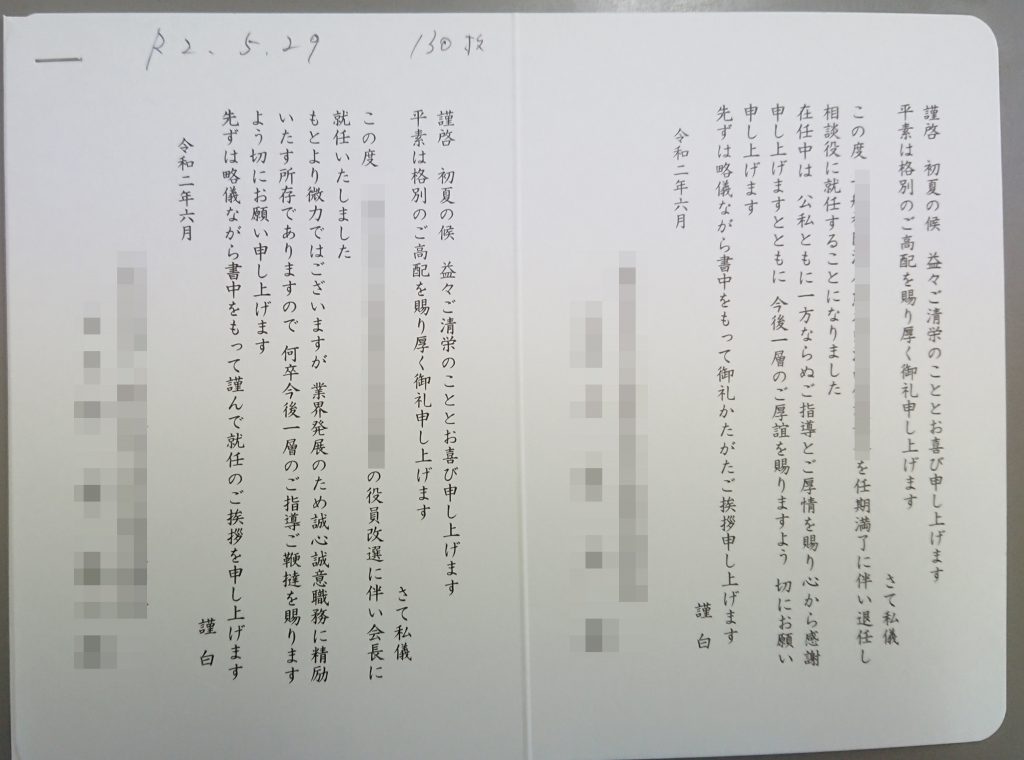 R2.5.29 130枚
謹啓 初夏の候 益々ご清栄のこととお喜び申し上げます
平素は格別のご高配を賜り厚く御礼申し上げます
さて私儀
この度
を任期満了に伴い退任し
相談役に就任することになりました
在任中は 公私ともに一方ならぬご指導とご厚情を賜り心から感謝
申し上げますとともに 今後一層のご厚誼を賜りますよう 切にお願い
申し上げます
先ずは略儀ながら書中をもって御礼かたがたご挨拶申し上げます
謹白
令和二年六月
謹啓 初夏の候 益々ご清栄のこととお喜び申し上げます
平素は格別のご高配を賜り厚く御礼申し上げます
さて私儀
この度
の役員改選に伴い会長に
就任いたしました
もとより微力ではございますが 業界発展のため誠心誠意職務に精励
いたす所存でありますので 何卒今後一層のご指導ご鞭撻を賜ります
よう切にお願い申し上げます
先ずは略儀ながら書中をもって謹んで就任のご挨拶を申し上げます
謹白
令和二年六月